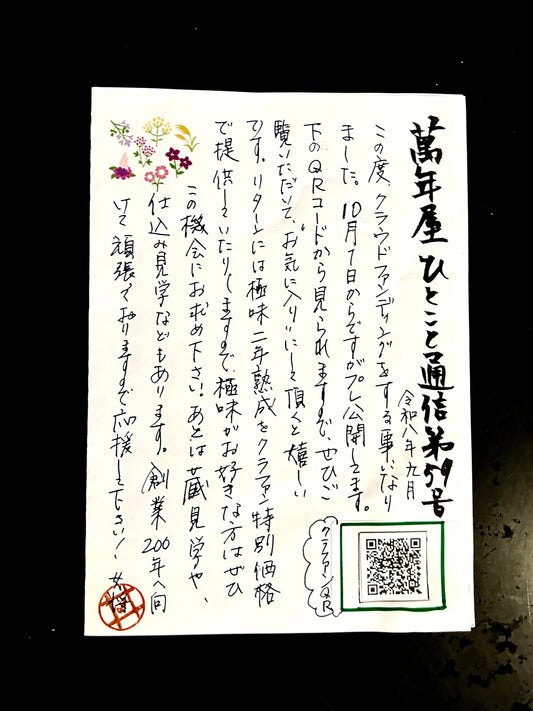 萬年屋ひとこと通信第59号
令和八年九月
この度クラウドファンディングをする事になり
ました。10月1日からですがプレ公開してます。
下のQRコードから見られますので、ぜひご
覧いただいて、"お気に入り"にして頂くと嬉しい
です。リターンには極味二年熟成をクラファン特別価格
で提供していたりしますので、極味がお好きな方はぜひ
この機会にお求め下さい。あとは蔵見学や、
仕込み見学などもあります。創業200年へ向
けて頑張っておりますので応援して下さい! 女将
クラファンQR